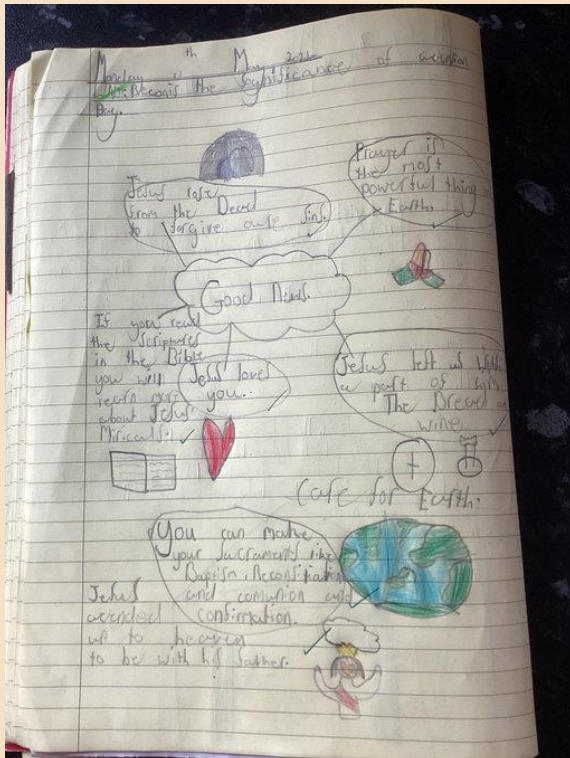 Monday th May
the Sygnificance of
Day.
Jesus rose
from the Dead
to forgive owe sins.
Prayer is
the most
powerful thing
Earth.
Good News.
If you read
the Scriptures
in the Bible
you will
learn more
about Jesus'
Miricals.
Jesus loves
you.
Jesus left us with
a part of him
The Bread
wine
Care for Earth.
You can make
your Sacraments like
Baptism, Reconsiliation
and comunion and
confirmation.
Jesus
acended
up to heaven
to be with his father.